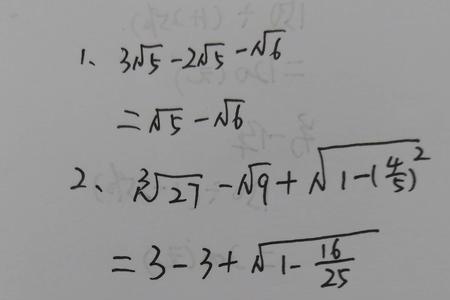 1、 3√5 - 2√5 - √6
= √5 - √6
2、 ∛27 - √9 + √(1-(4/5)²)
= 3 - 3 + √(1 - 16/25)